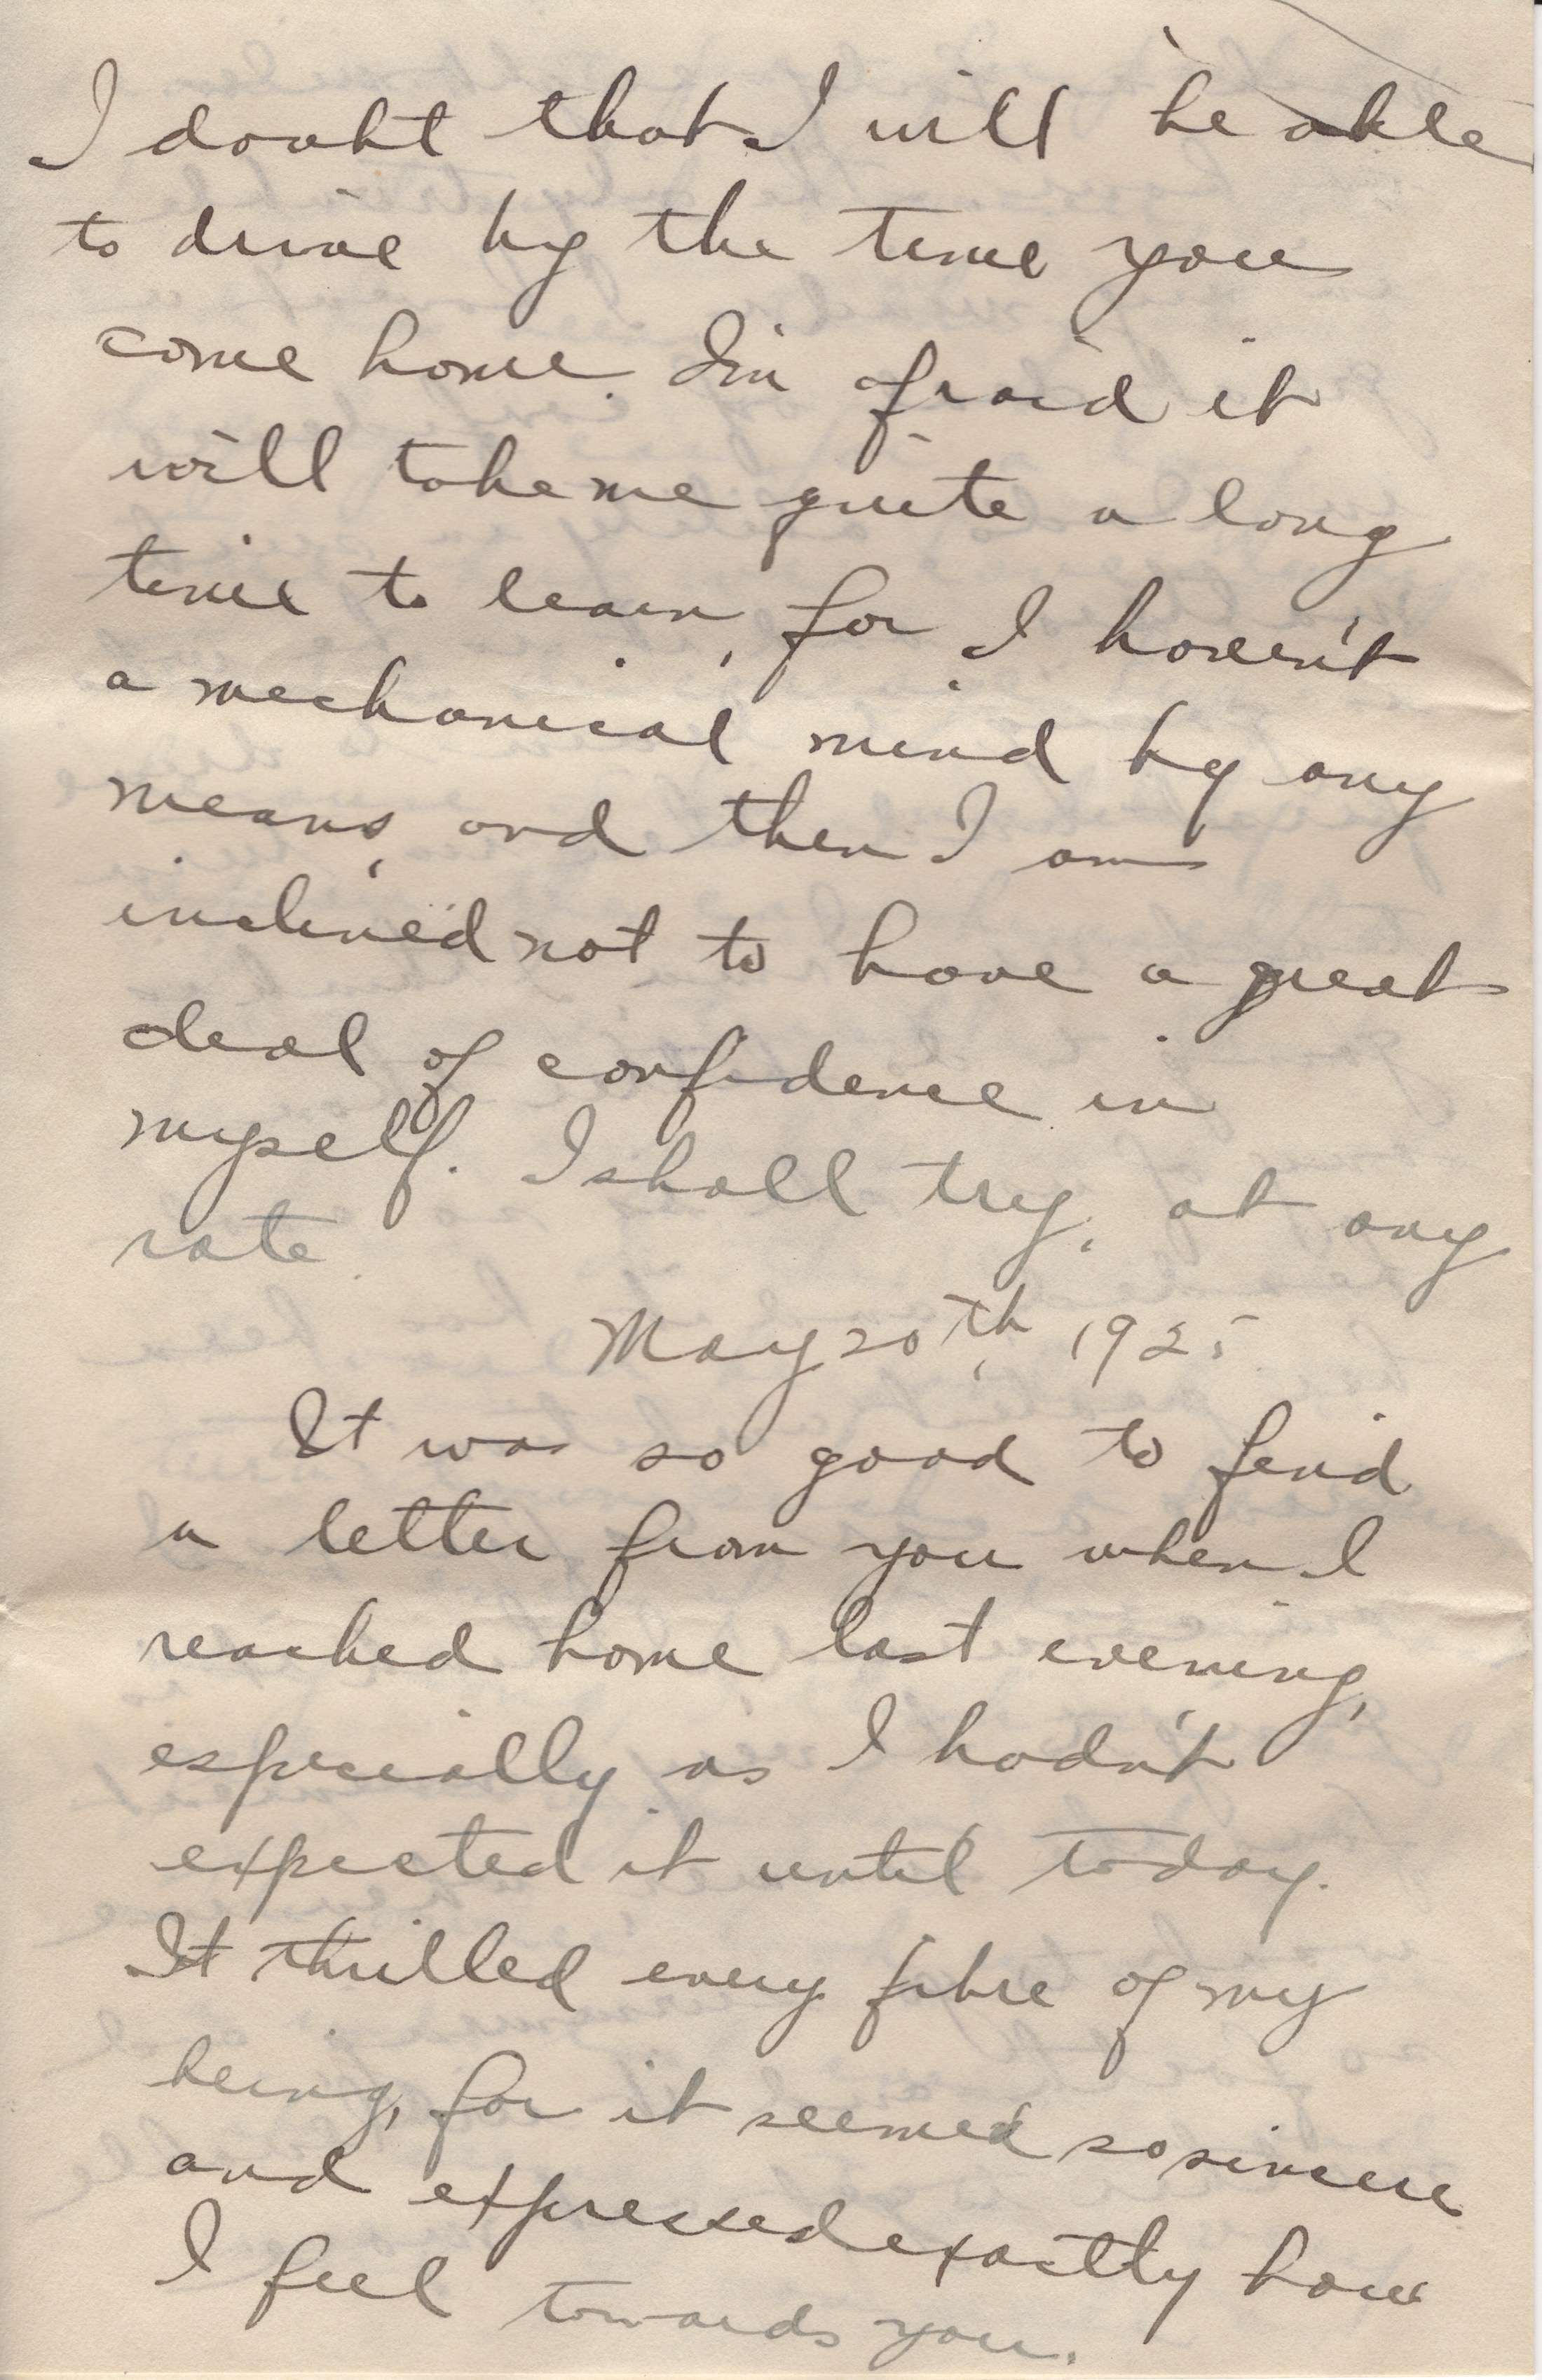 I doubt that I will be able
to drive by the time you
come home. I'm afraid it
will take me quite a long
time to learn, for I haven't
a mechanical mind by any
means, and then I am
inclined not to have a great
deal of confidence in
myself. I shall try, at any
rate.
May 20th, 1925
It was so good to find
a letter from you when I
reached home last evening,
especially as I hadn't
expected it until today.
It thrilled every fibre of my
being, for it seemed so sincere
and expressed exactly how
I feel towards you.